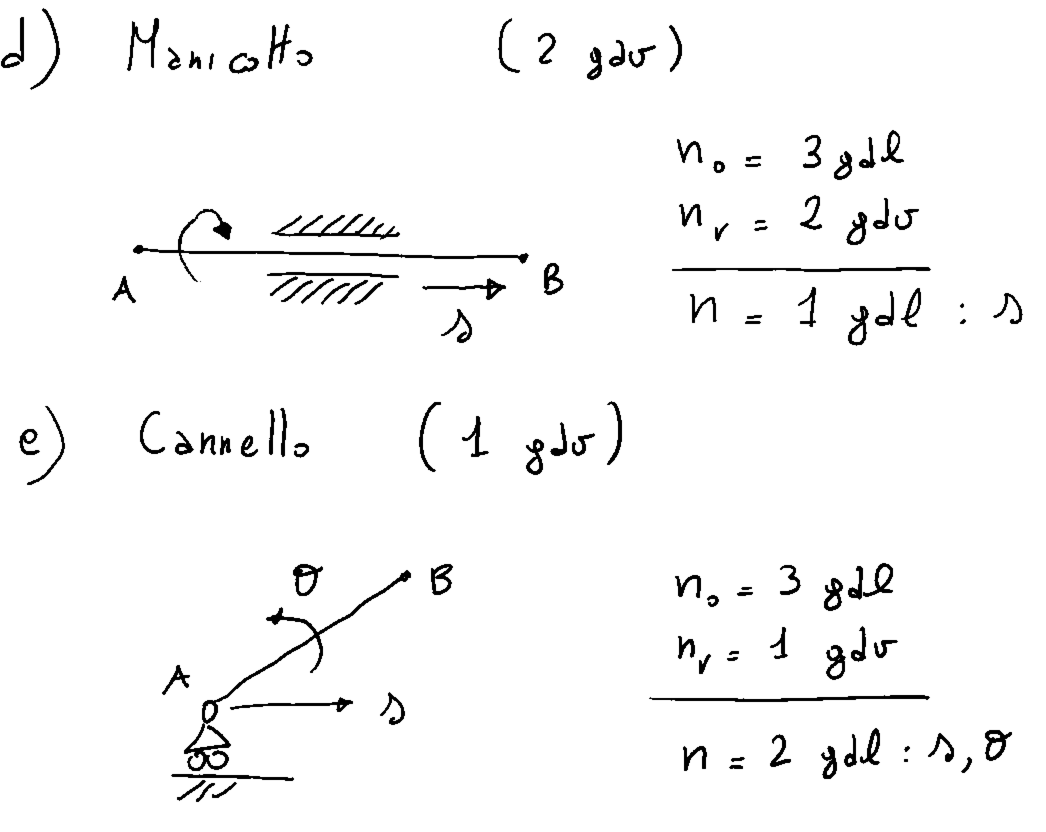 d) Manicotto (2 gdv)
n₀ = 3 gdl
nᵥ = 2 gdv
n = 1 gdl : s
A
B
s
e) Cannello (1 gdv)
θ
B
A
s
n₀ = 3 gdl
nᵥ = 1 gdv
n = 2 gdl : s, θ